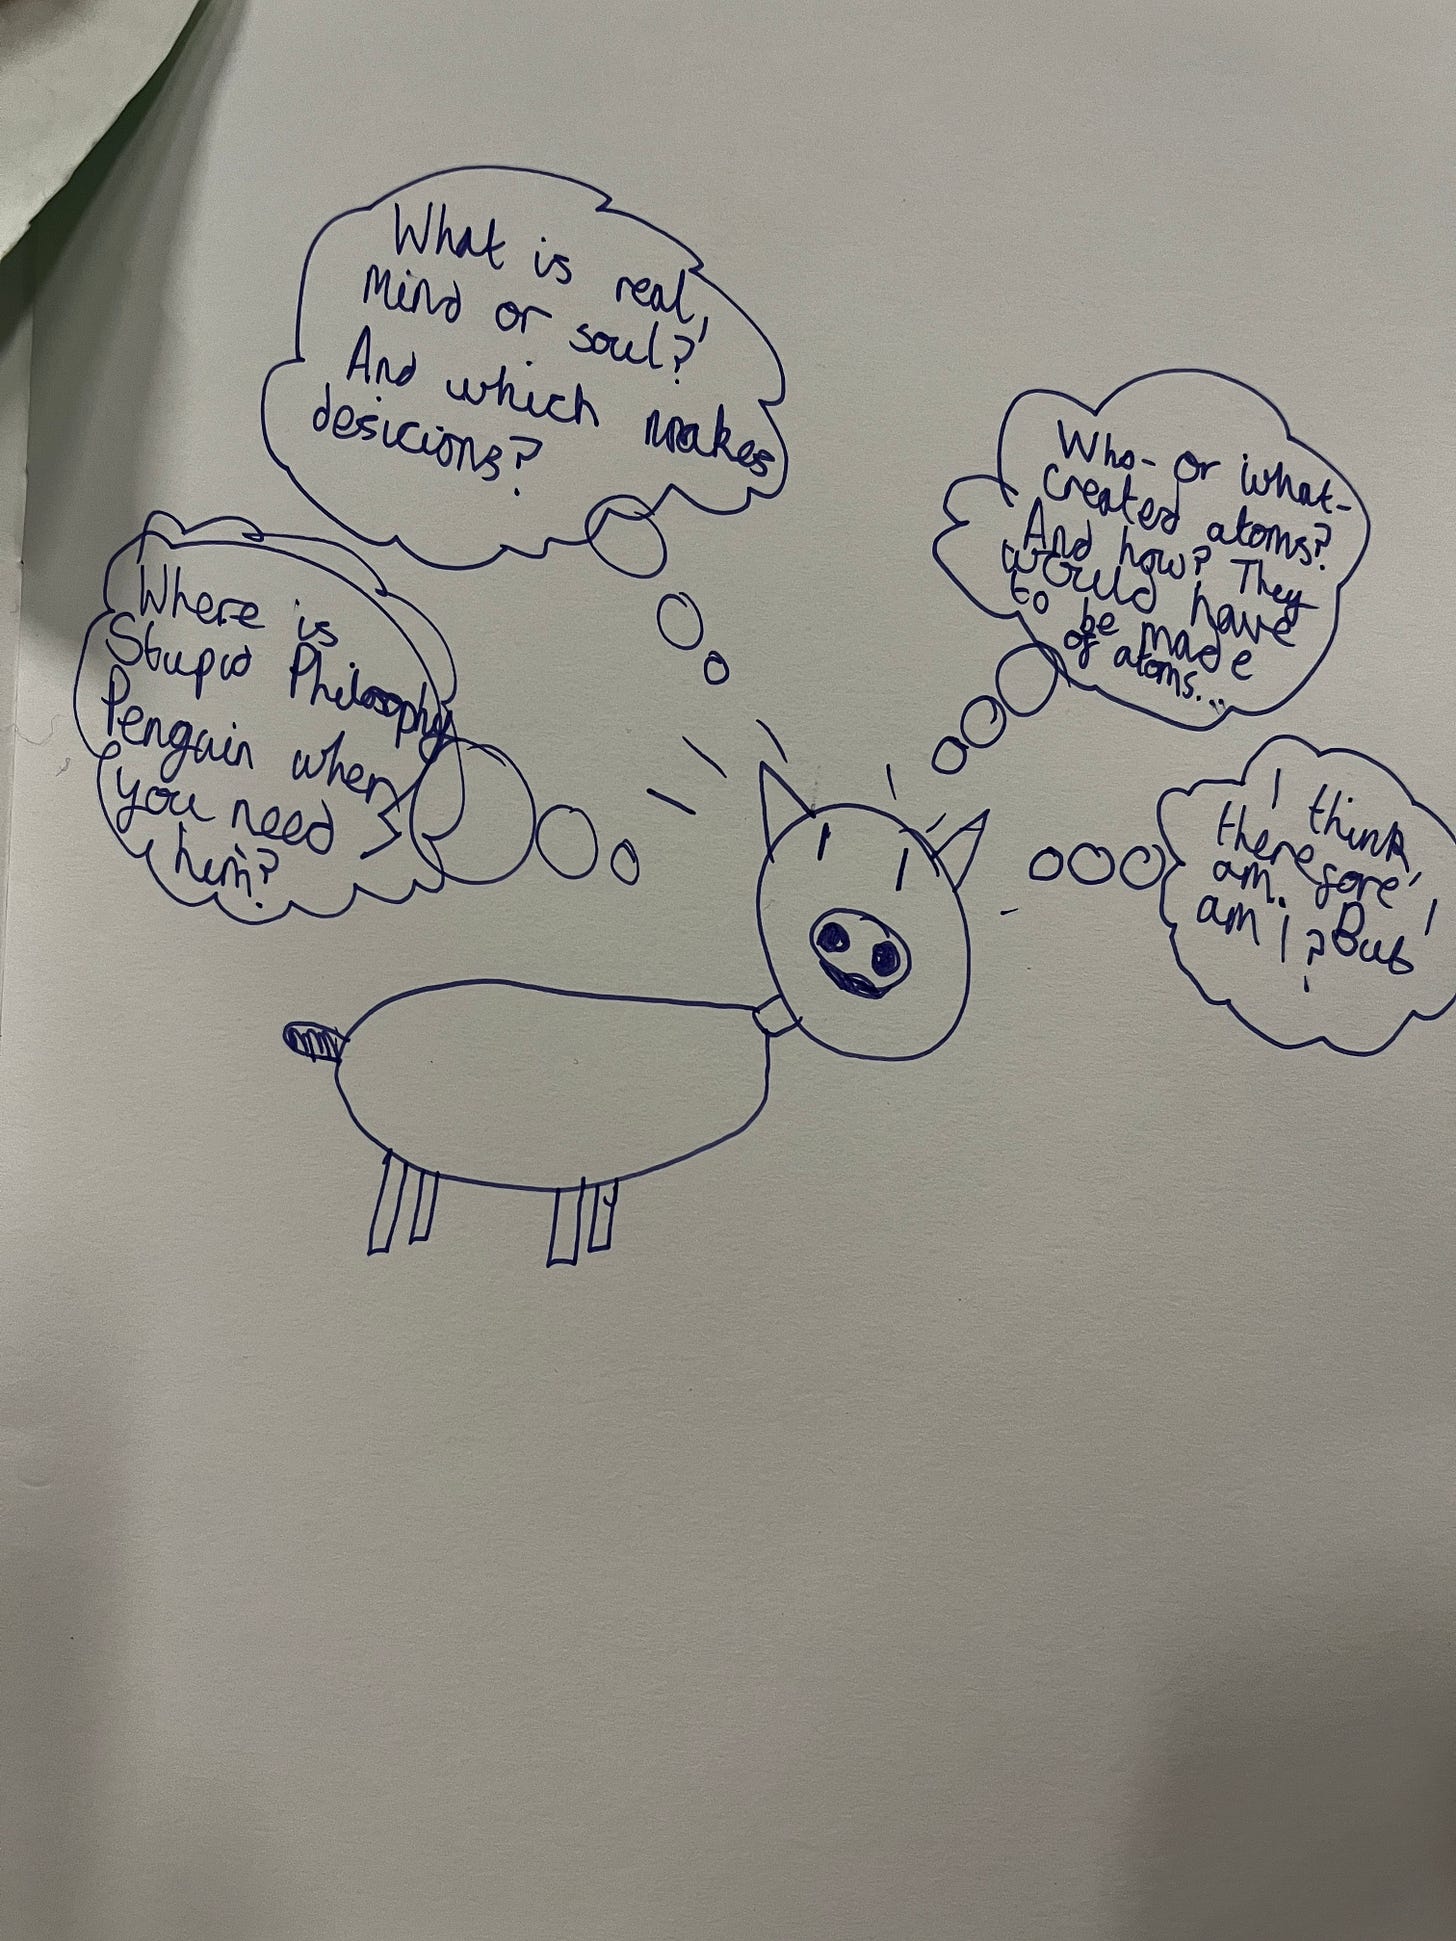 What is real,
Mind or soul?
And which makes
desicions?
Who- or what-
created atoms?
And how? They
would have
to be made
of atoms...
Where is
Stupid Philosophy
Penguin when
you need
him?
I think,
therefore I
am. But
am I?